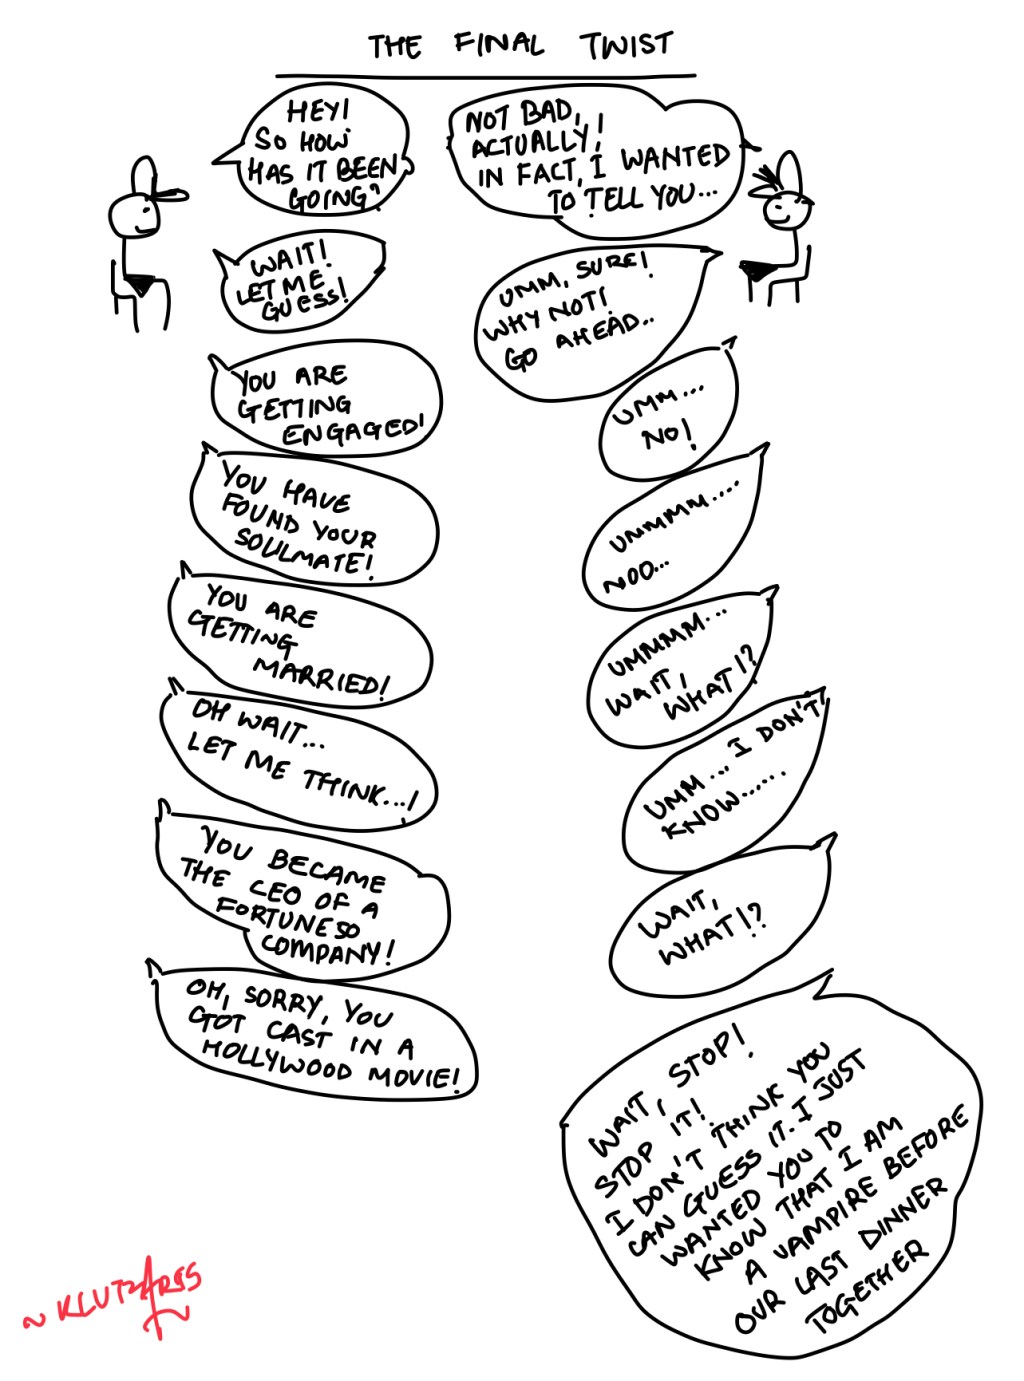 THE FINAL TWIST
HEY!
SO HOW
HAS IT BEEN
GOING?
NOT BAD,
ACTUALLY!
IN FACT, I WANTED
TO TELL YOU...
WAIT!
LET ME
GUESS!
UMM, SURE!
WHY NOT!
GO AHEAD..
YOU ARE
GETTING
ENGAGED!
UMM...
NO!
YOU HAVE
FOUND YOUR
SOULMATE!
UMMMM....
NOO...
YOU ARE
GETTING
MARRIED!
UMMMM...
WAIT,
WHAT!?
OH WAIT...
LET ME THINK...!
UMM... I DON'T
KNOW......
YOU BECAME
THE CEO OF A
FORTUNE50
COMPANY!
WAIT,
WHAT!?
OH, SORRY, YOU
GOT CAST IN A
HOLLYWOOD MOVIE!
WAIT, STOP!
STOP IT!
I DON'T THINK YOU
CAN GUESS IT. I JUST
WANTED YOU TO
KNOW THAT I AM
A VAMPIRE BEFORE
OUR LAST DINNER
TOGETHER